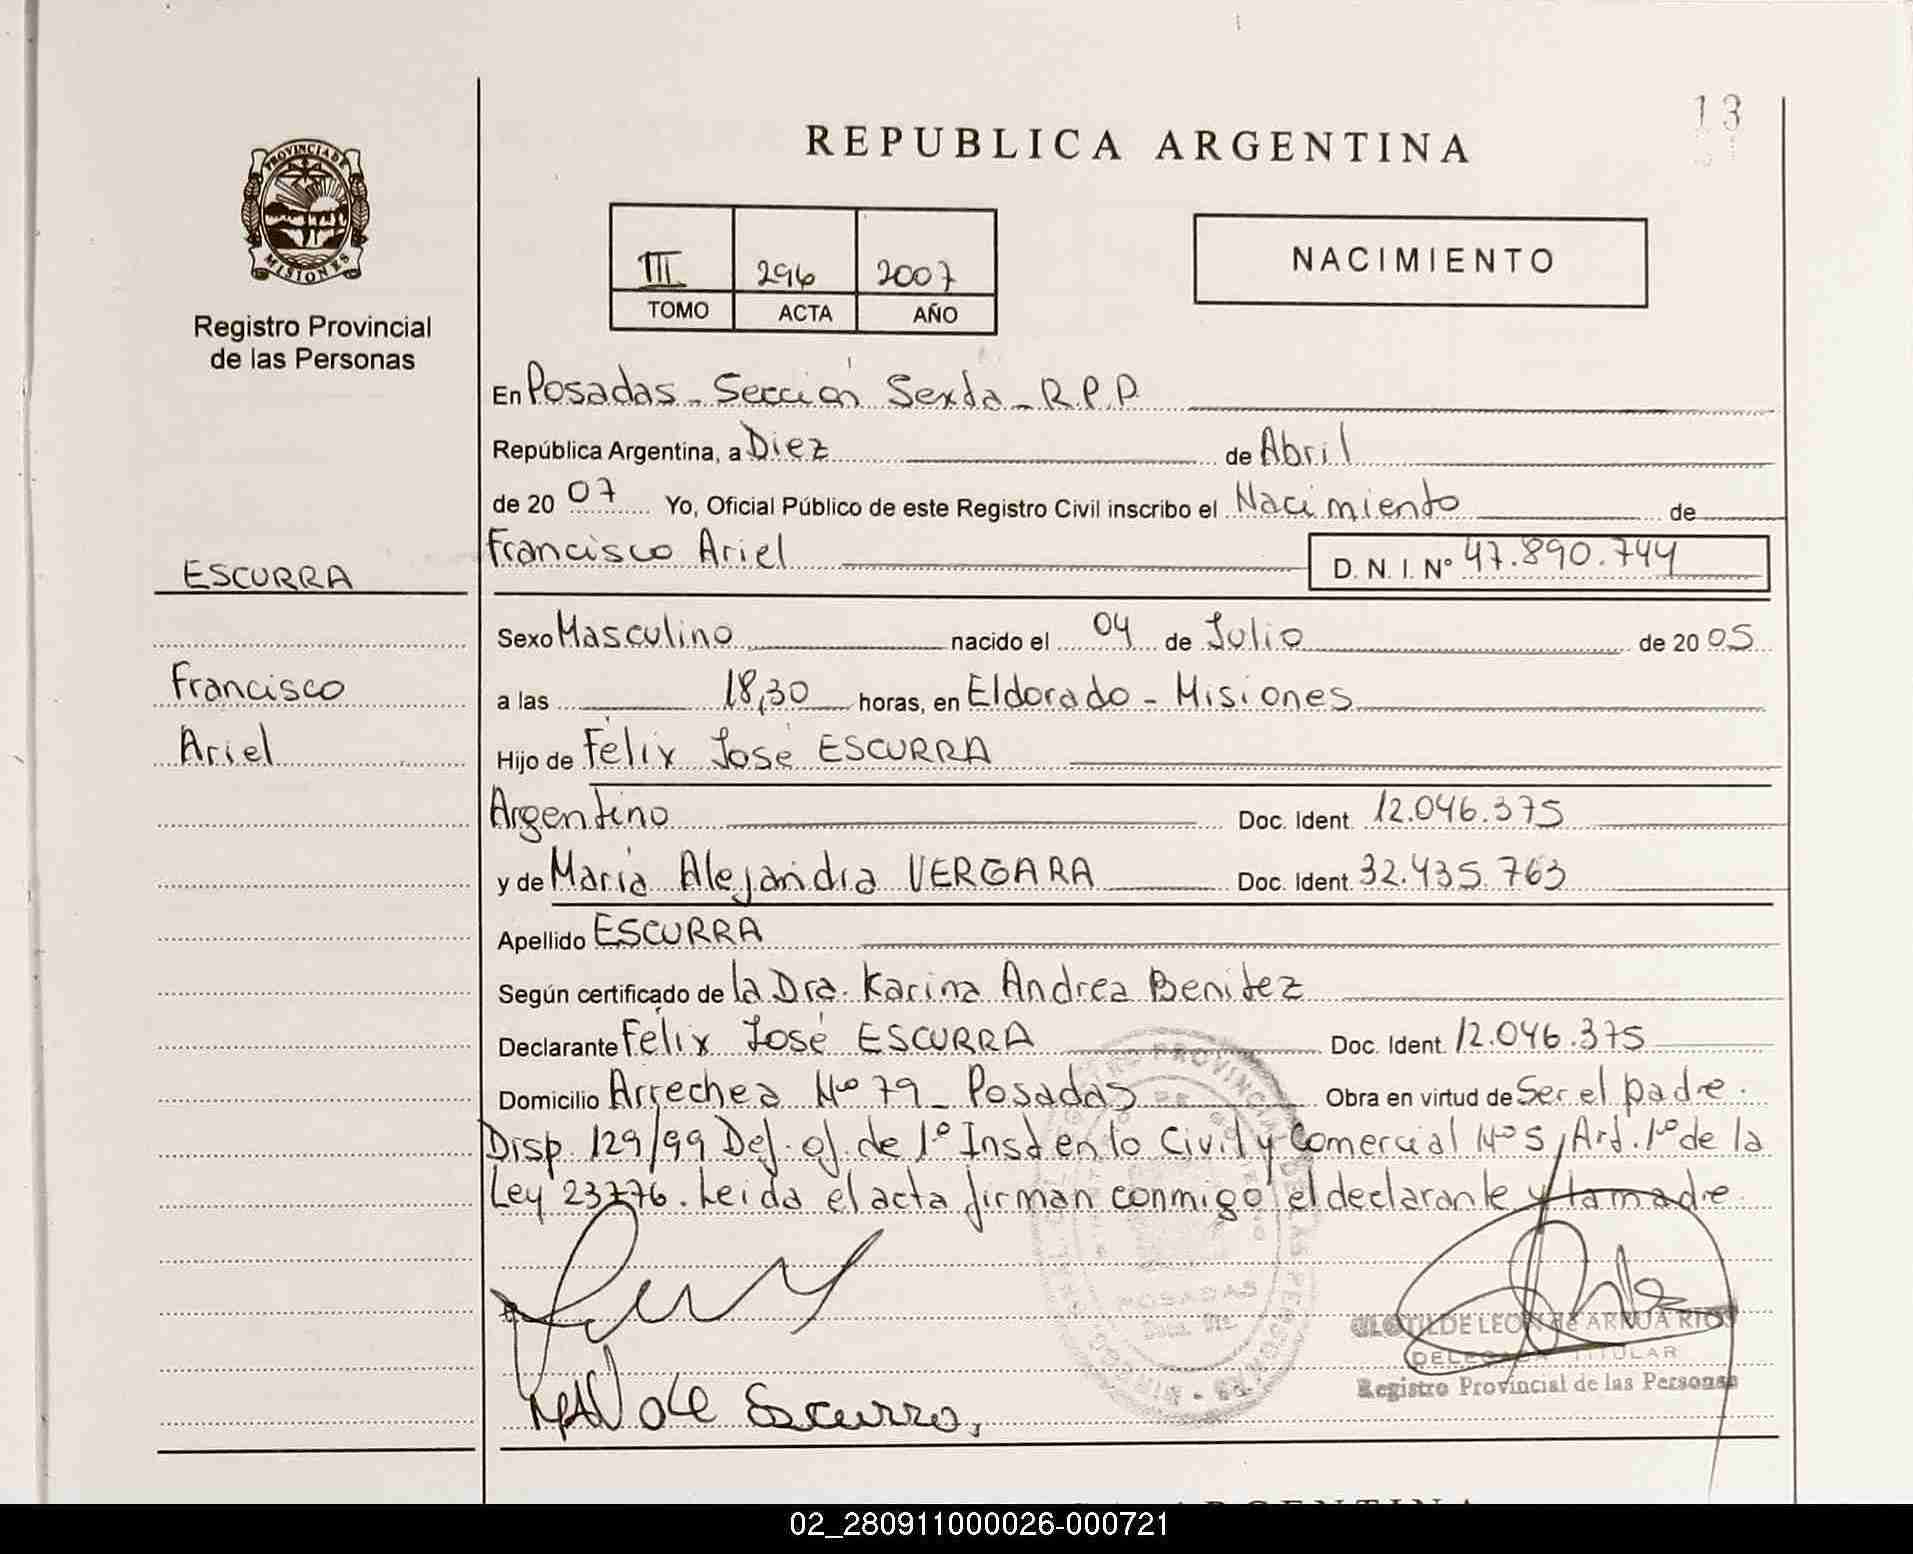 13
REPUBLICA ARGENTINA
PROVINCIA DE
MISIONES
Registro Provincial
de las Personas
III 296 2007
TOMO ACTA AÑO
NACIMIENTO
En Posadas - Sección Sexta - R.P.P
República Argentina, a Diez de Abril
de 20 07 Yo, Oficial Público de este Registro Civil inscribo el Nacimiento de
Francisco Ariel D. N. I. Nº 47.890.744
ESCURRA
Francisco
Ariel
Sexo Masculino nacido el 04 de Julio de 20 05
a las 18,30 horas, en Eldorado - Misiones
Hijo de Félix José ESCURRA
Argentino Doc. Ident. 12.046.375
y de María Alejandra VERGARA Doc. Ident. 32.435.763
Apellido ESCURRA
Según certificado de la Dra. Karina Andrea Benitez
Declarante Félix José ESCURRA Doc. Ident. 12.046.375
Domicilio Arrechea Nº 79 - Posadas Obra en virtud de Ser el padre.
Disp. 129/99 Def. of. de 1º Inst en lo Civil y Comercial Nº 5, Art. 1º de la
Ley 23776. Leida el acta firman conmigo el declarante y la madre
POSADAS
CLOTILDE LEON de ARRUA RIOS
DELEGADA TITULAR
Registro Provincial de las Personas
Escurra
02_280911000026-000721